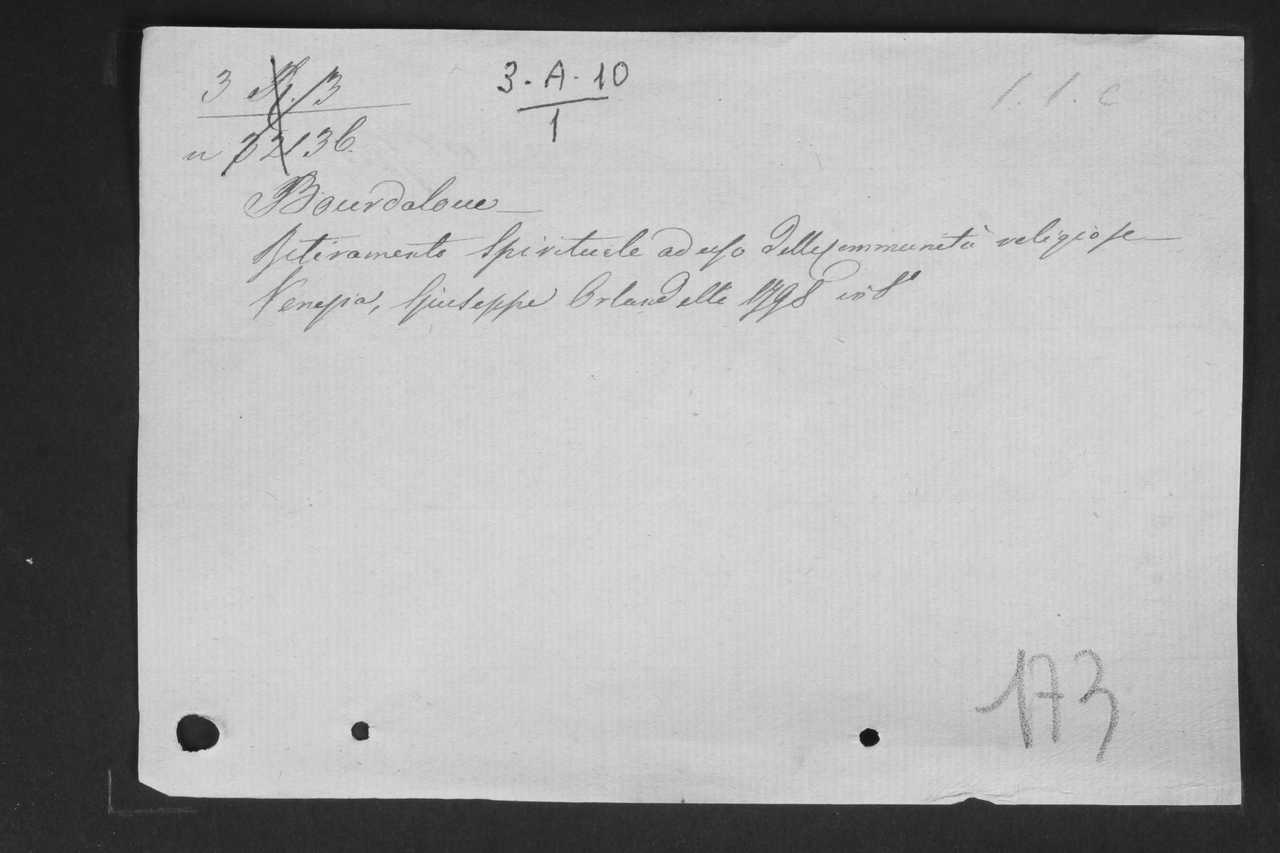 3 B. 3
3-A-10
1
1. 1. c
n 32136
Bourdaloue
Ritiramento Spirituale ad uso delle communità religiose
Venezia, Giuseppe Orlandelli 1798 in 8°
173